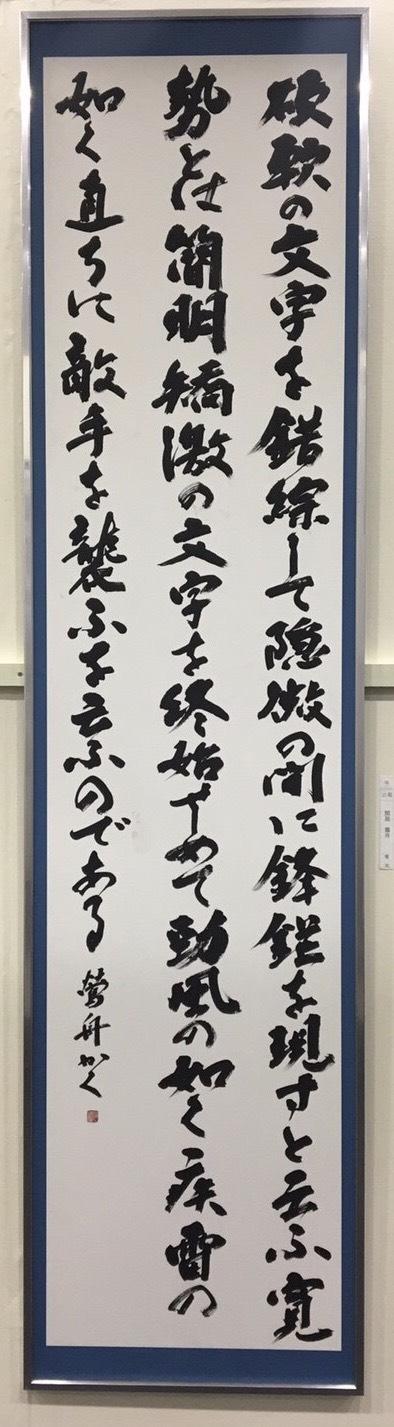 硬軟の文字を錯綜して隠微の間に鋒鋩を現すと云ふ寛
勢とは簡明矯激の文字を終始せめて勁風の如く疾雷の
如く直ちに敵手を襲ふを云ふのである 鶯舟かく